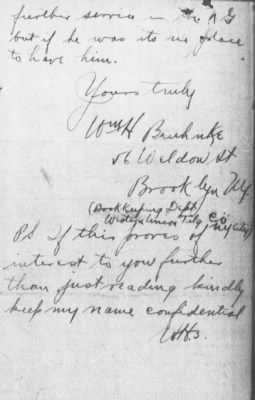 further service in the N G
but if he was its no place
to have him.
Yours truly
Wm H Bruhnke
56 Weldon St
Brooklyn NY
(Bookkeeping Dept
Western Union Telg Co. NY City)
P.S. If this proves of
interest to you further
than just reading kindly
keep my name confidential
WHB.